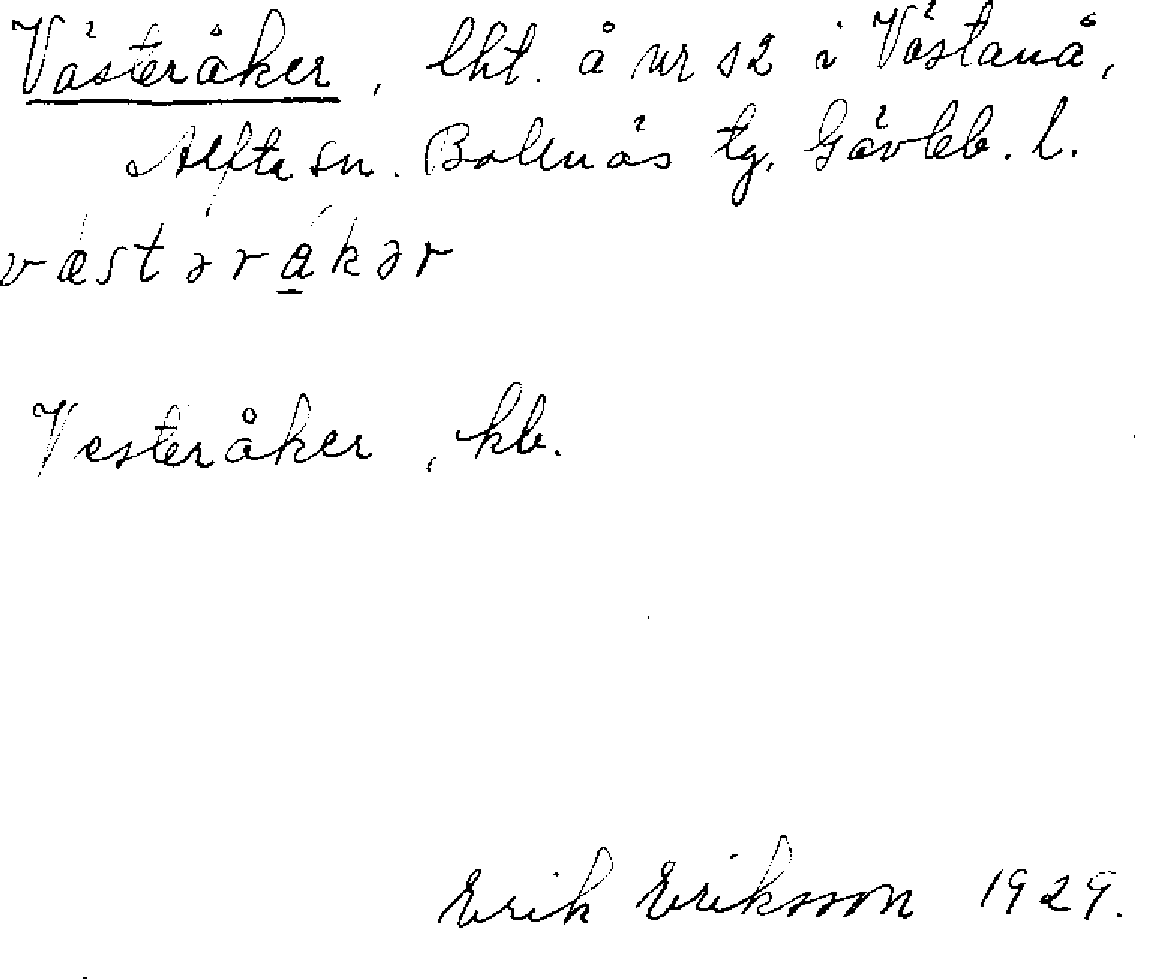 Västeråker, lht. å nr 12 i Västanå,
Alfta sn. Bollnäs tg. Gävleb. l.
væstəråkər
Vesteråker, kb.
Erik Eriksson 1929.